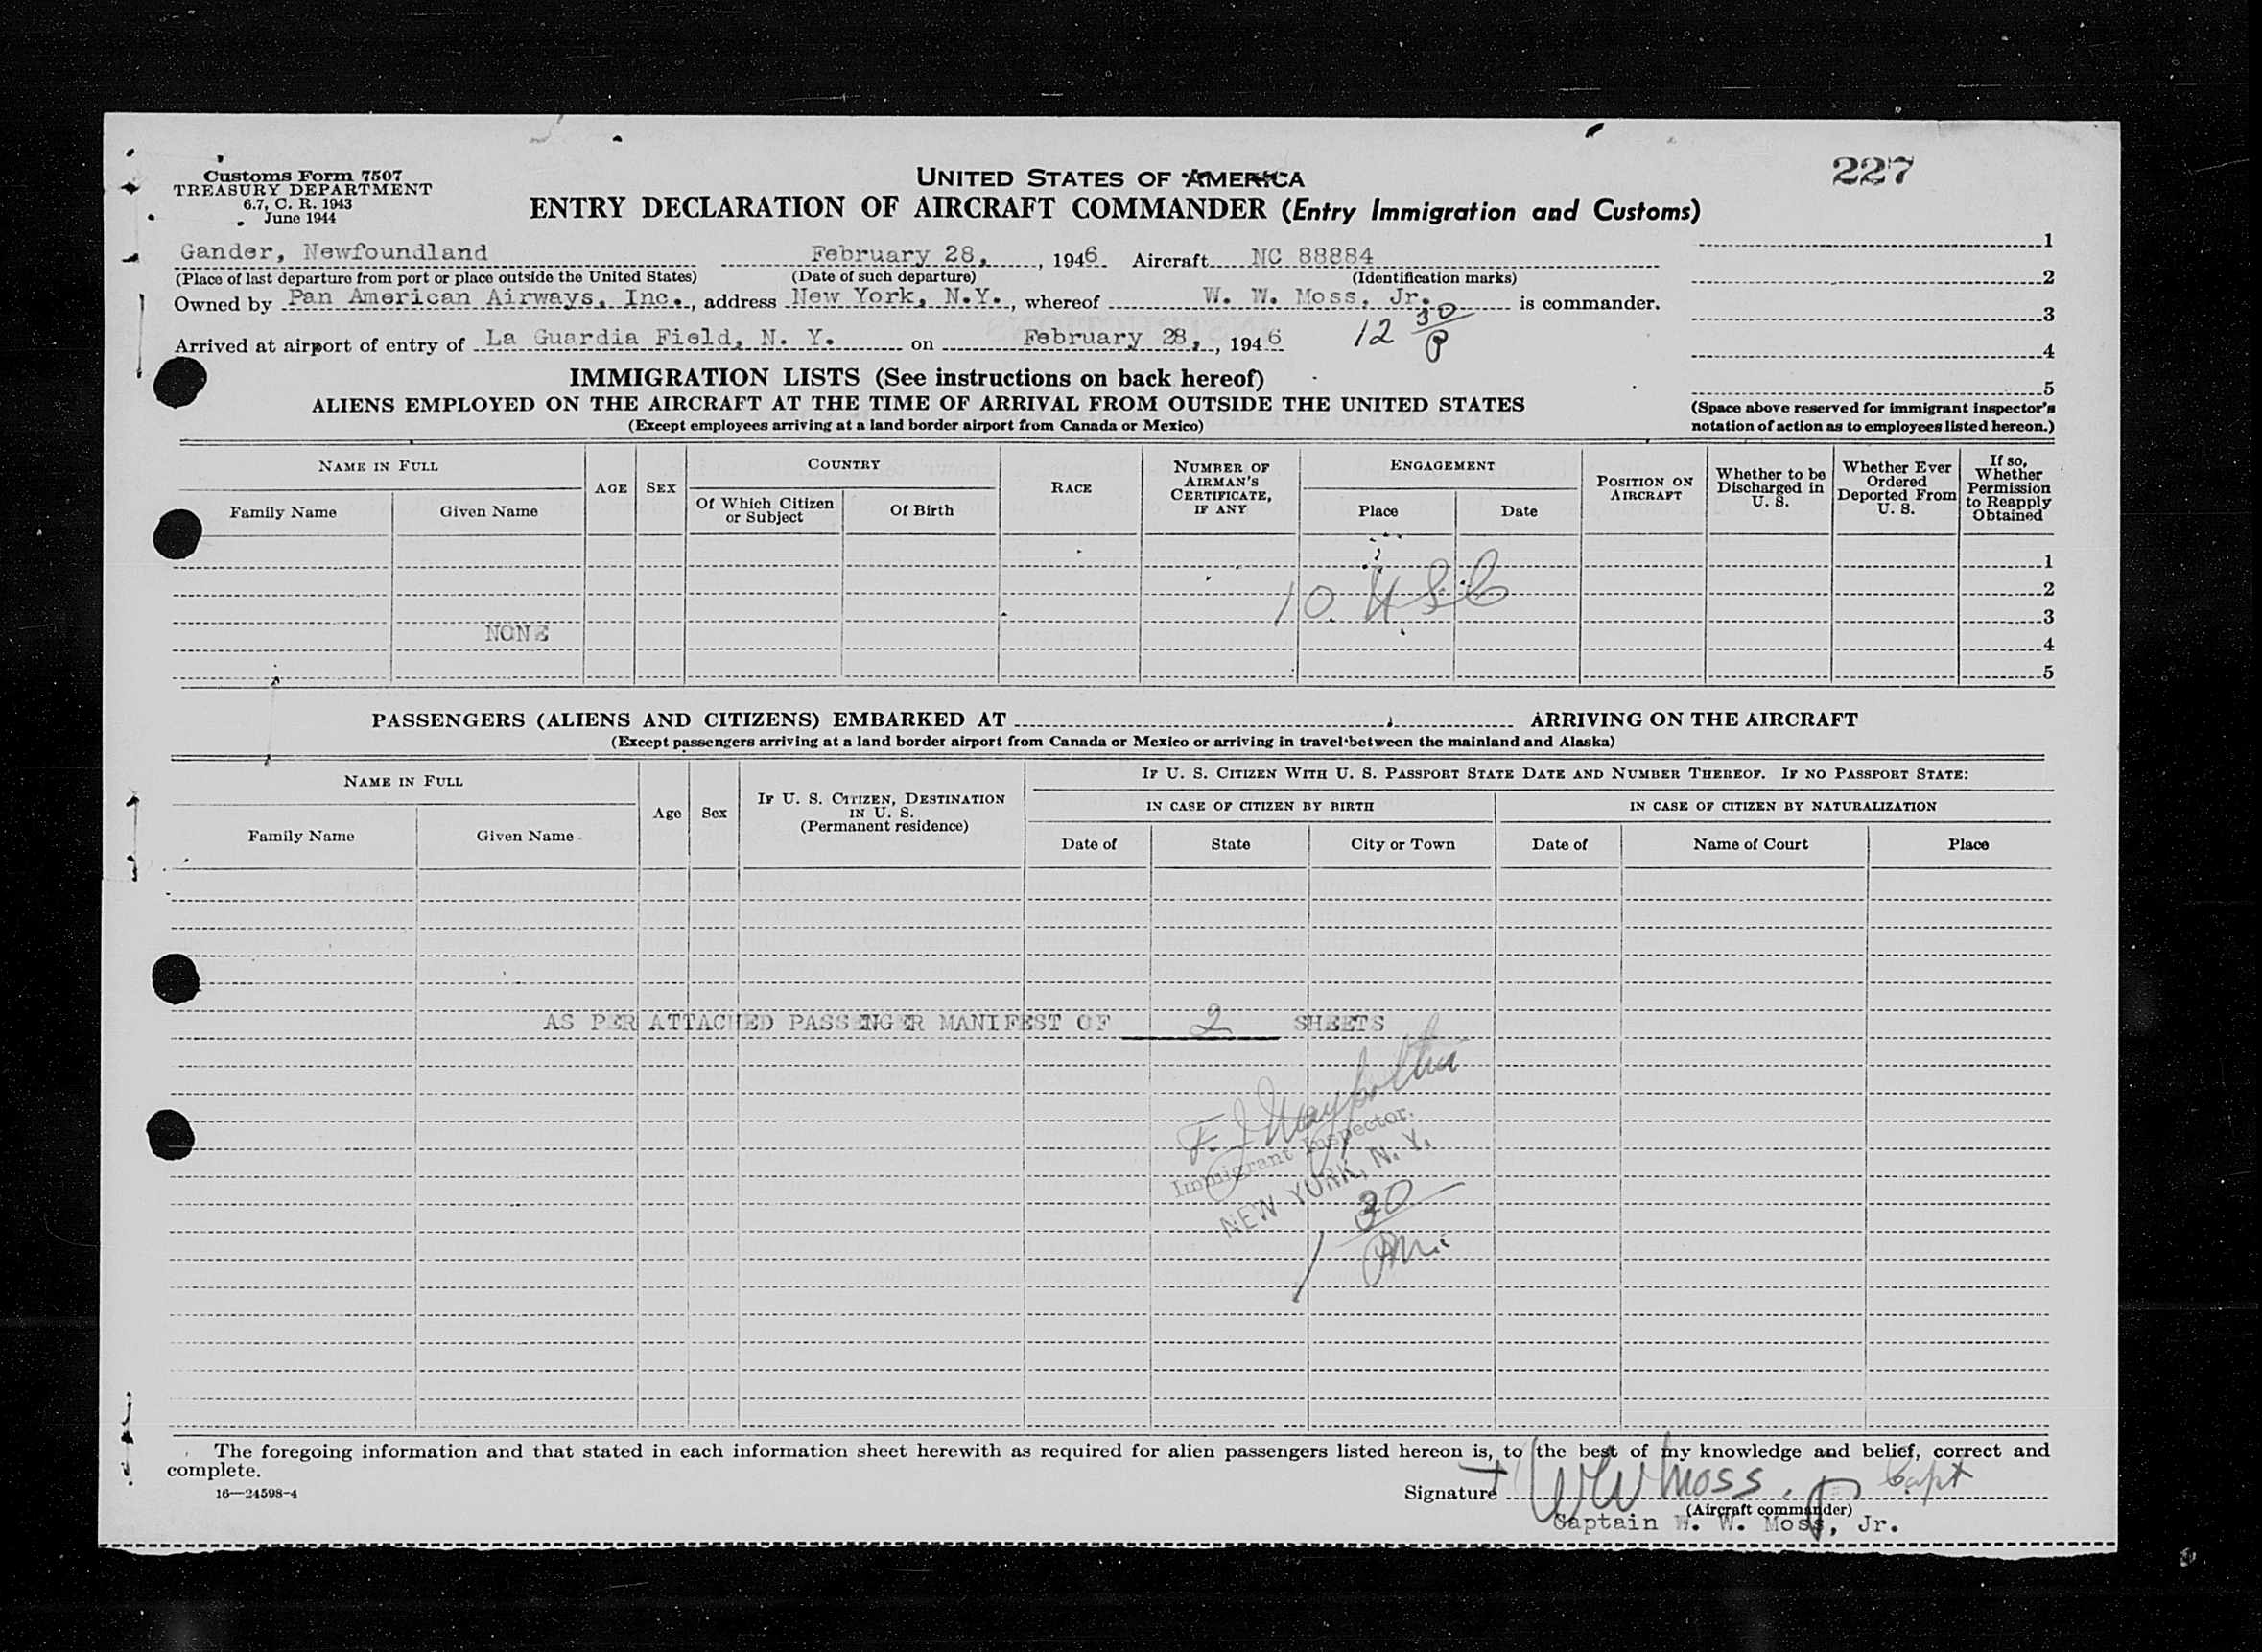 Customs Form 7507
TREASURY DEPARTMENT
6.7, C. R. 1943
June 1944
UNITED STATES OF AMERICA
ENTRY DECLARATION OF AIRCRAFT COMMANDER (Entry Immigration and Customs)
227
Gander, Newfoundland February 28, , 1946 Aircraft NC 88884
(Place of last departure from port or place outside the United States) (Date of such departure) (Identification marks)
Owned by Pan American Airways, Inc., address New York, N.Y., whereof W. W. Moss, Jr. is commander.
Arrived at airport of entry of La Guardia Field, N. Y. on February 28, , 1946 12 30 P
1
2
3
4
5
(Space above reserved for immigrant inspector's
notation of action as to employees listed hereon.)
IMMIGRATION LISTS (See instructions on back hereof)
ALIENS EMPLOYED ON THE AIRCRAFT AT THE TIME OF ARRIVAL FROM OUTSIDE THE UNITED STATES
(Except employees arriving at a land border airport from Canada or Mexico)
NAME IN FULL
Family Name Given Name
AGE SEX
COUNTRY
Of Which Citizen or Subject Of Birth
RACE
NUMBER OF AIRMAN'S CERTIFICATE, IF ANY
ENGAGEMENT
Place Date
POSITION ON AIRCRAFT
Whether to be Discharged in U. S.
Whether Ever Ordered Deported From U. S.
If so, Whether Permission to Reapply Obtained
1
2
10. USC
3
NONE
4
5
PASSENGERS (ALIENS AND CITIZENS) EMBARKED AT , ARRIVING ON THE AIRCRAFT
(Except passengers arriving at a land border airport from Canada or Mexico or arriving in travel between the mainland and Alaska)
NAME IN FULL
Family Name Given Name
Age Sex
IF U. S. CITIZEN, DESTINATION IN U. S.
(Permanent residence)
IF U. S. CITIZEN WITH U. S. PASSPORT STATE DATE AND NUMBER THEREOF. IF NO PASSPORT STATE:
IN CASE OF CITIZEN BY BIRTH IN CASE OF CITIZEN BY NATURALIZATION
Date of State City or Town Date of Name of Court Place
AS PER ATTACHED PASSENGER MANIFEST OF 2 SHEETS
F. J.
Immigrant Inspector,
NEW YORK, N. Y.
1 30 PM
The foregoing information and that stated in each information sheet herewith as required for alien passengers listed hereon is, to the best of my knowledge and belief, correct and
complete.
16—24598-4
Signature W W Moss, Jr Capt
(Aircraft commander)
Captain W. W. Moss, Jr.